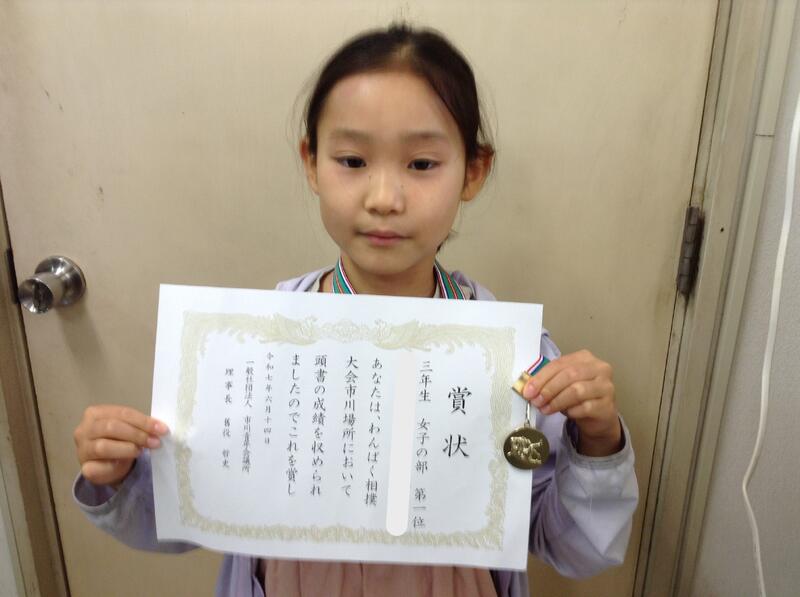 賞状
三年生 女子の部 第一位
あなたは、わんぱく相撲
大会市川場所において
頭書の成績を収められ
ましたのでこれを賞し
令和七年六月十四日
一般社団法人 市川青年会議所
理事長 舊役 哲史